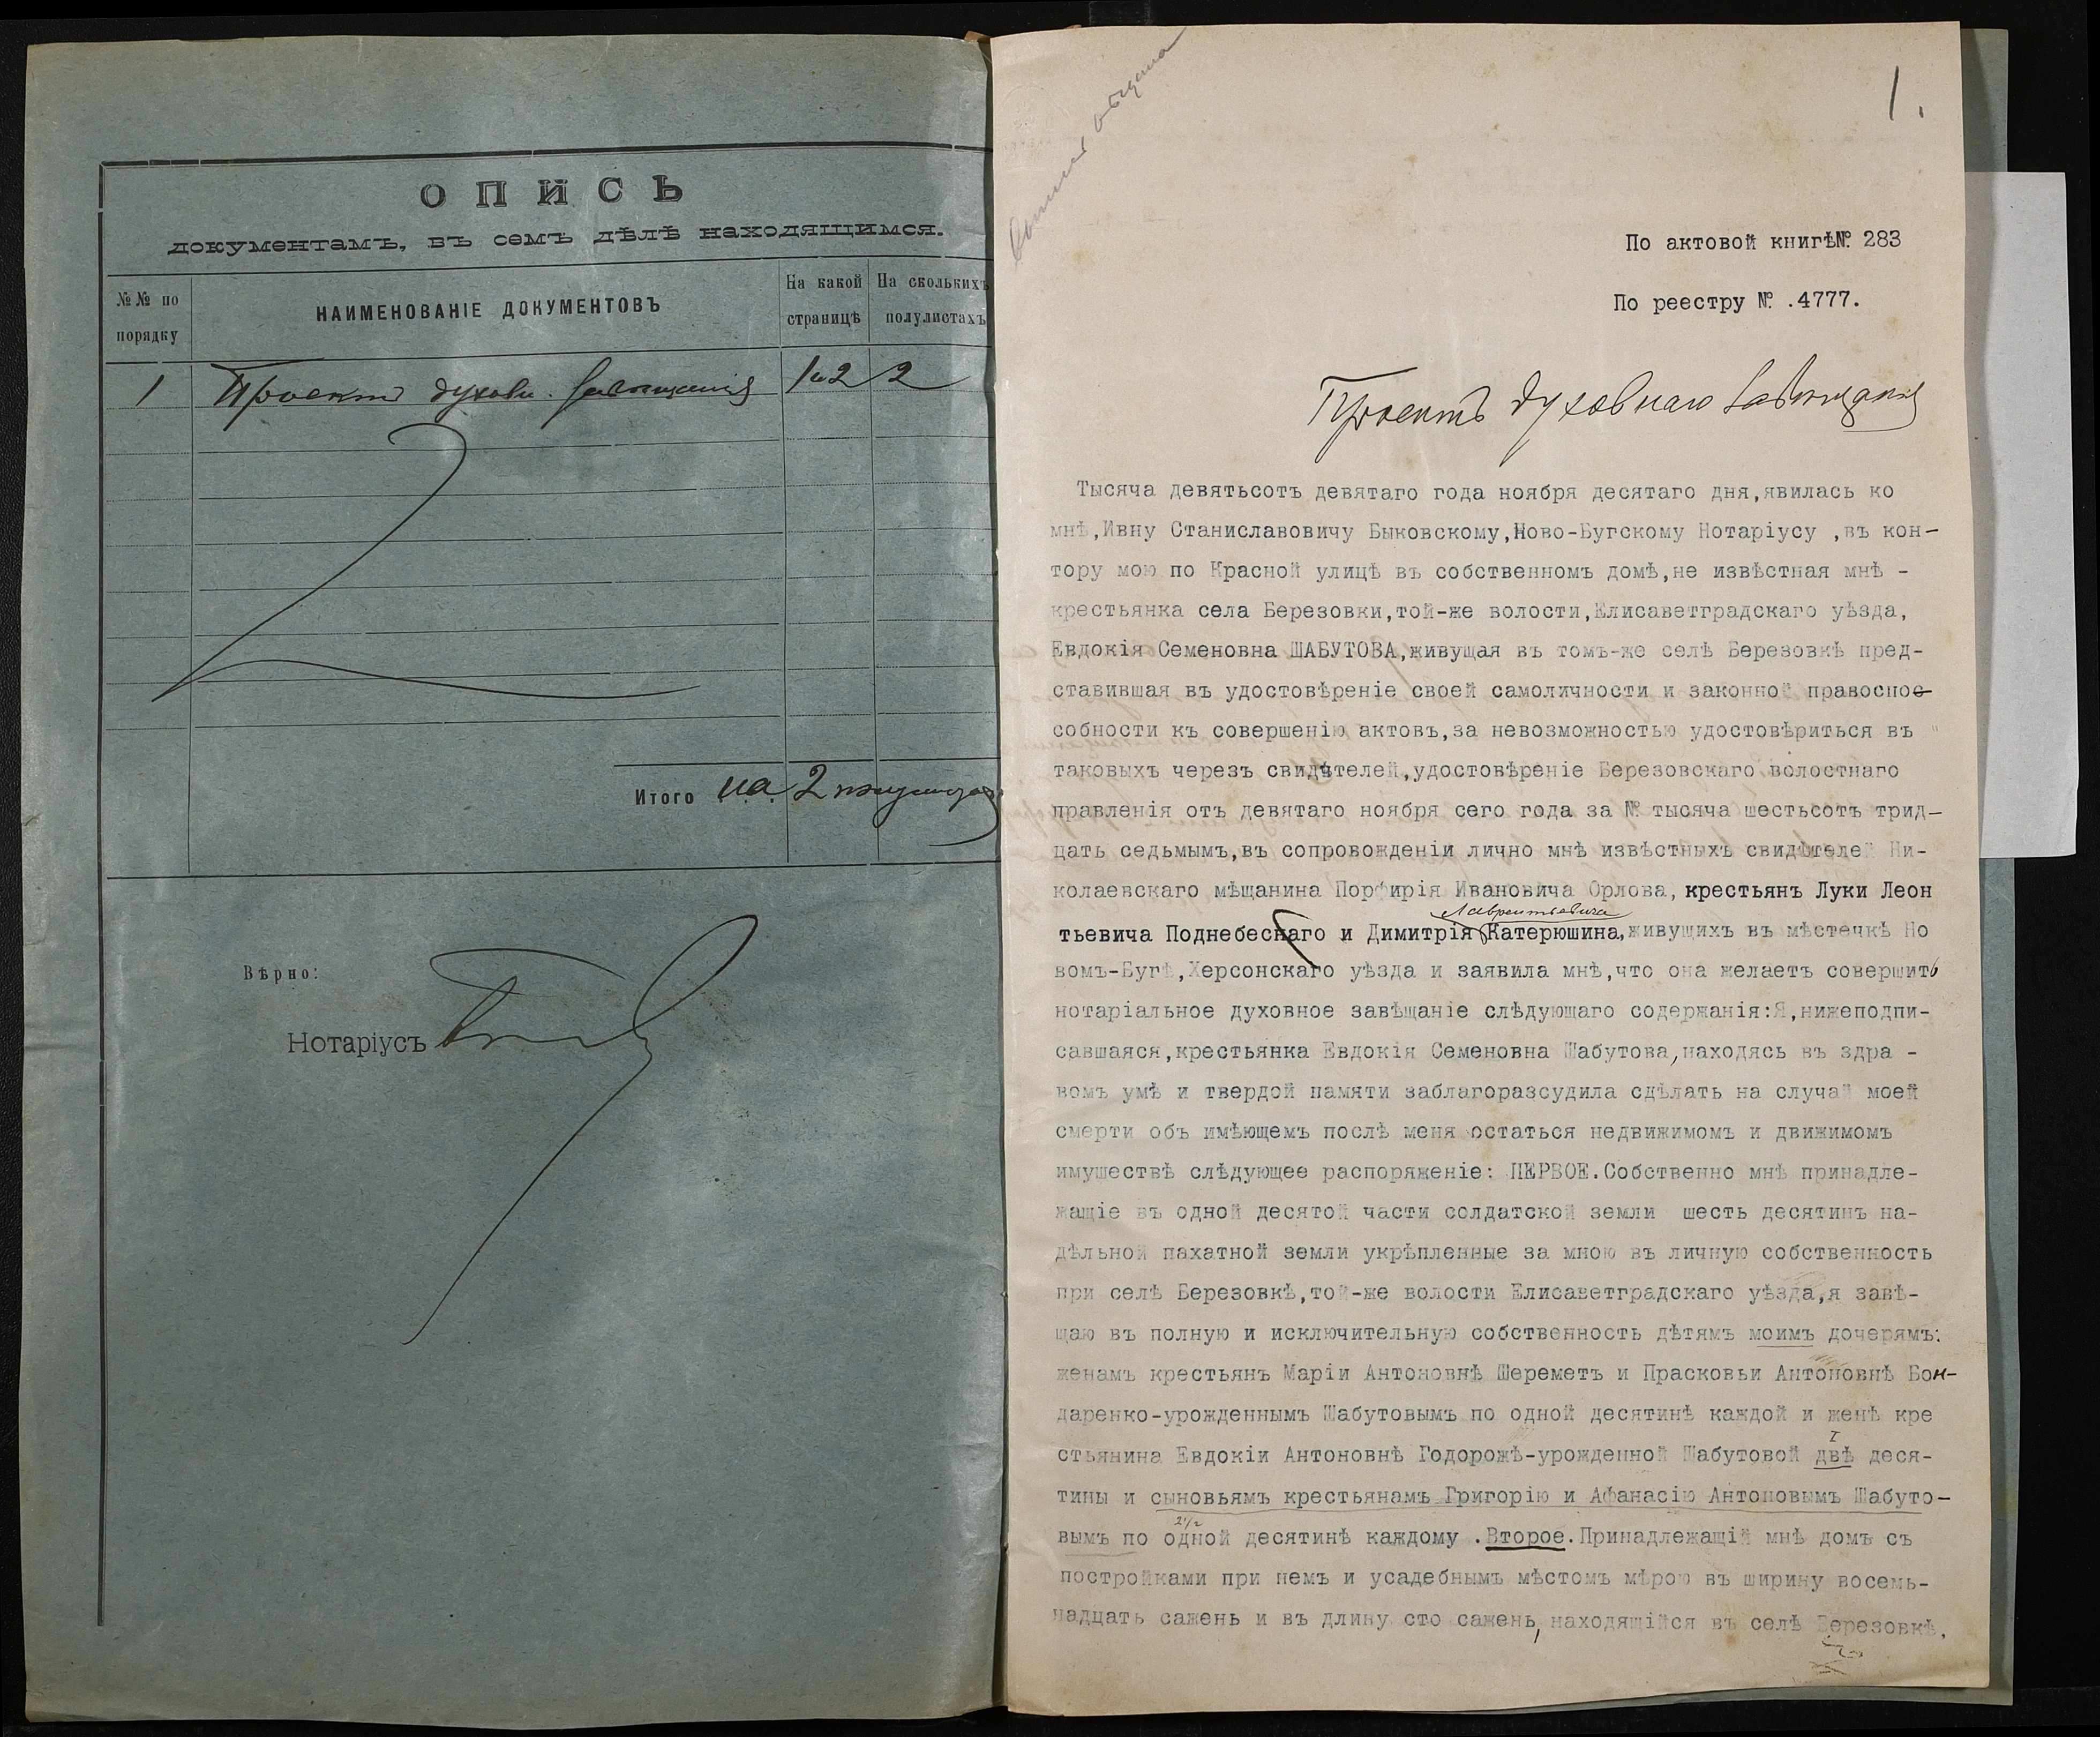 ОПИСЬ
документамъ, въ семъ дѣлѣ находящимся.
№№ по порядку
НАИМЕНОВАНІЕ ДОКУМЕНТОВЪ
На какой страницѣ
На сколькихъ полулистахъ
1 Проектъ духовн. завѣщанія 1и2 2
Итого на 2
Вѣрно:
Нотаріусъ
1.
По актовой книгѣ № 283
По реестру № .4777.
Проектъ духовнаго завѣщанія
Тысяча девятьсотъ девятаго года ноября десятаго дня,явилась ко
мнѣ,Ивну Станиславовичу Быковскому,Ново-Бугскому Нотаріусу ,въ кон-
тору мою по Красной улицѣ въ собственномъ домѣ,не извѣстная мнѣ -
крестьянка села Березовки,той-же волости,Елисаветградскаго уѣзда,
Евдокія Семеновна ШАБУТОВА,живущая въ томъ-же селѣ Березовкѣ пред-
ставившая въ удостовѣреніе своей самоличности и законной правоспо-
собности къ совершенію актовъ,за невозможностью удостовѣриться въ
таковыхъ черезъ свидѣтелей,удостовѣреніе Березовскаго волостнаго
правленія отъ девятаго ноября сего года за № тысяча шестьсотъ трид-
цать седьмымъ,въ сопровожденіи лично мнѣ извѣстныхъ свидѣтелей Ни-
колаевскаго мѣщанина Порфирія Ивановича Орлова, крестьянъ Луки Леон
Лаврентьевича
тьевича Поднебеснаго и Димитрія Катерюшина,живущихъ въ мѣстечкѣ Но
вомъ-Бугѣ,Херсонскаго уѣзда и заявила мнѣ,что она желаетъ совершить
нотаріальное духовное завѣщаніе слѣдующаго содержанія:Я,нижеподпи-
савшаяся,крестьянка Евдокія Семеновна Шабутова,находясь въ здра -
вомъ умѣ и твердой памяти заблагоразсудила сдѣлать на случай моей
смерти объ имѣющемъ послѣ меня остаться недвижимомъ и движимомъ
имуществѣ слѣдующее распоряженіе: ПЕРВОЕ.Собственно мнѣ принадле-
жащіе въ одной десятой части солдатской земли шесть десятинъ на-
дѣльной пахатной земли укрѣпленные за мною въ личную собственность
при селѣ Березовкѣ,той-же волости Елисаветградскаго уѣзда,я завѣ-
щаю въ полную и исключительную собственность дѣтямъ моимъ дочерямъ:
женамъ крестьянъ Маріи Антоновнѣ Шереметъ и Прасковьи Антоновнѣ Бон-
даренко-урожденнымъ Шабутовымъ по одной десятинѣ каждой и женѣ кре
I
стьянина Евдокіи Антоновнѣ Годорожѣ-урожденной Шабутовой двѣ деся-
тины и сыновьямъ крестьянамъ Григорію и Афанасію Антоновымъ Шабуто-
2½
вымъ по одной десятинѣ каждому .Второе.Принадлежащій мнѣ домъ съ
постройками при немъ и усадебнымъ мѣстомъ мѣрою въ ширину восемь-
надцать сажень и въ длину сто сажень,находящійся въ селѣ Березовкѣ,